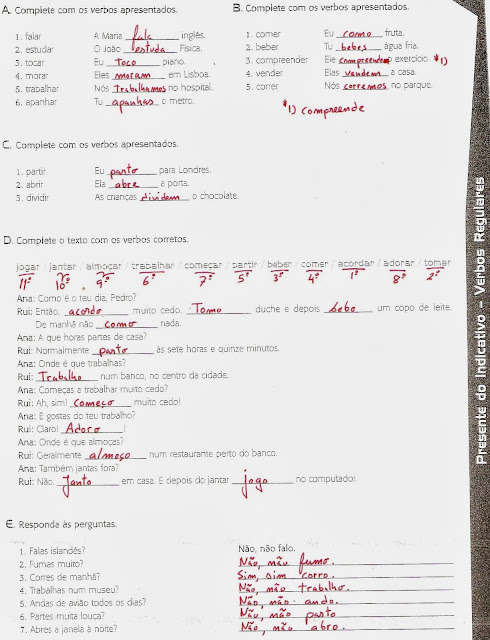 A. Complete com os verbos apresentados.
1. falar A Maria fala inglês.
2. estudar O João estuda Física.
3. tocar Eu toco piano.
4. morar Eles moram em Lisboa.
5. trabalhar Nós Trabalhamos no hospital.
6. apanhar Tu apanhas o metro.
B. Complete com os verbos apresentados.
1. comer Eu como fruta.
2. beber Tu bebes água fria.
3. compreender Ele compreendem o exercício. *1)
4. vender Elas vendem a casa.
5. correr Nós corremos no parque.
*1) compreende
C. Complete com os verbos apresentados.
1. partir Eu parto para Londres.
2. abrir Ela abre a porta.
3. dividir As crianças dividem o chocolate.
D. Complete o texto com os verbos corretos.
jogar / jantar / almoçar / trabalhar / começar / partir / beber / comer / acordar / adorar / tomar
11º 10º 9º 6º 7º 5º 3º 4º 1º 8º 2º
Ana: Como é o teu dia, Pedro?
Rui: Então, acordo muito cedo. Tomo duche e depois bebo um copo de leite.
De manhã não como nada.
Ana: A que horas partes de casa?
Rui: Normalmente parto às sete horas e quinze minutos.
Ana: Onde é que trabalhas?
Rui: Trabalho num banco, no centro da cidade.
Ana: Começas a trabalhar muito cedo?
Rui: Ah, sim! Começo muito cedo!
Ana: E gostas do teu trabalho?
Rui: Claro! Adoro!
Ana: Onde é que almoças?
Rui: Geralmente almoço num restaurante perto do banco.
Ana: Também jantas fora?
Rui: Não. Janto em casa. E depois do jantar jogo no computador.
E. Responda às perguntas.
1. Falas islandês? Não, não falo.
2. Fumas muito? Não, não fumo.
3. Corres de manhã? Sim, sim corro.
4. Trabalhas num museu? Não, não trabalho.
5. Andas de avião todos os dias? Não, não ando.
6. Partes muita louça? Não, não parto
7. Abres a janela à noite? Não, não abro.
Presente do Indicativo – Verbos Regulares